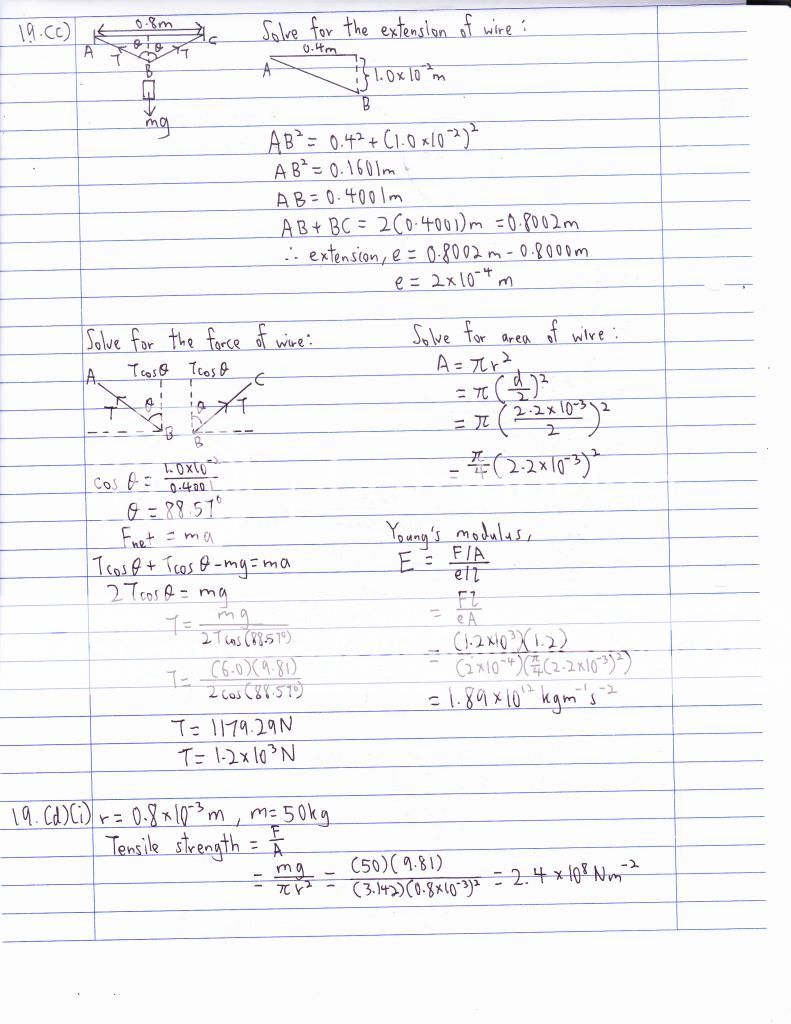 19.(c)
0.8m
A
θ θ
C
T
T
B
mg
Solve for the extension of wire:
0.4m
A
1.0×10⁻²m
B
AB² = 0.4² + (1.0×10⁻²)²
AB² = 0.1601m
AB = 0.4001m
AB + BC = 2(0.4001)m = 0.8002m
∴ extension, e = 0.8002m - 0.8000m
e = 2×10⁻⁴ m
Solve for the force of wire:
A
Tcosθ Tcosθ
C
T
θ
θ
T
B
B
cos θ = 1.0×10⁻²/0.4001
θ = 88.57°
Fnet = ma
Tcosθ + Tcosθ - mg = ma
2Tcosθ = mg
T = mg/2Tcos(88.57°)
T = (6.0)(9.81)/2cos(88.57°)
T = 1179.29N
T = 1.2×10³N
Solve for area of wire:
A = πr²
= π(d/2)²
= π(2.2×10⁻³/2)²
= π/4(2.2×10⁻³)²
Young's modulus,
E = F/A / e/l
= Fl/eA
= (1.2×10³)(1.2)/(2×10⁻⁴)(π/4(2.2×10⁻³)²)
= 1.89×10¹² kgm⁻¹s⁻²
19.(d)(i) r = 0.8×10⁻³m, m = 50kg
Tensile strength = F/A
= mg/πr² = (50)(9.81)/(3.142)(0.8×10⁻³)² = 2.4×10⁸Nm⁻²